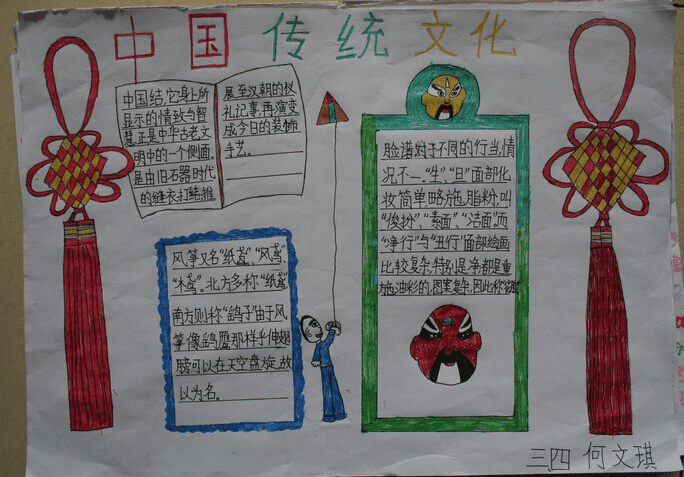 中国传统文化
中国结,它身上所
显示的情致与智
慧,正是中华古老文
明中的一个侧面.
是由旧石器时代
的缝衣打结,推
展至汉朝的仪
礼记事,再演变
成今日的装饰
手艺.
风筝又名“纸鸢”、“风鸢”、
“木鸢”。北方多称“纸鸢”
南方则称“鹞子”由于风
筝像鹞鹰那样乎伸翅
膀可以在天空盘旋,故
以为名.
脸谱对于不同的行当,情
况不一.“生”、“旦”面部化
妆简单略施,脂粉,叫
“俊扮”、“素面”、“洁面”.而
“净行”与“丑行”面部绘画
比较复杂,特别是净都是重
施油彩的,图案复杂,因此称
三、四 何文琪